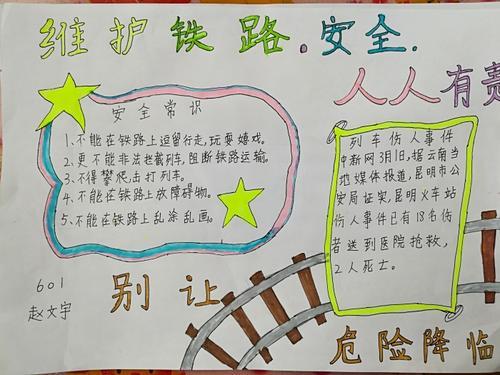 维护铁路.安全.
人人有责
安全常识
1、不能在铁路上逗留行走,玩耍嬉戏。
2、更不能非法拦截列车,阻断铁路运输。
3、不得攀爬、击打列车。
4、不能在铁路上放障碍物。
5、不能在铁路上乱涂乱画。
列车伤人事件
中新网3月1日,据云南当
地媒体报道,昆明市公
安局证实,昆明火车站
伤人事件已有18名伤
者送到医院抢救,
2人死亡。
601
赵文宇
别让
危险降临